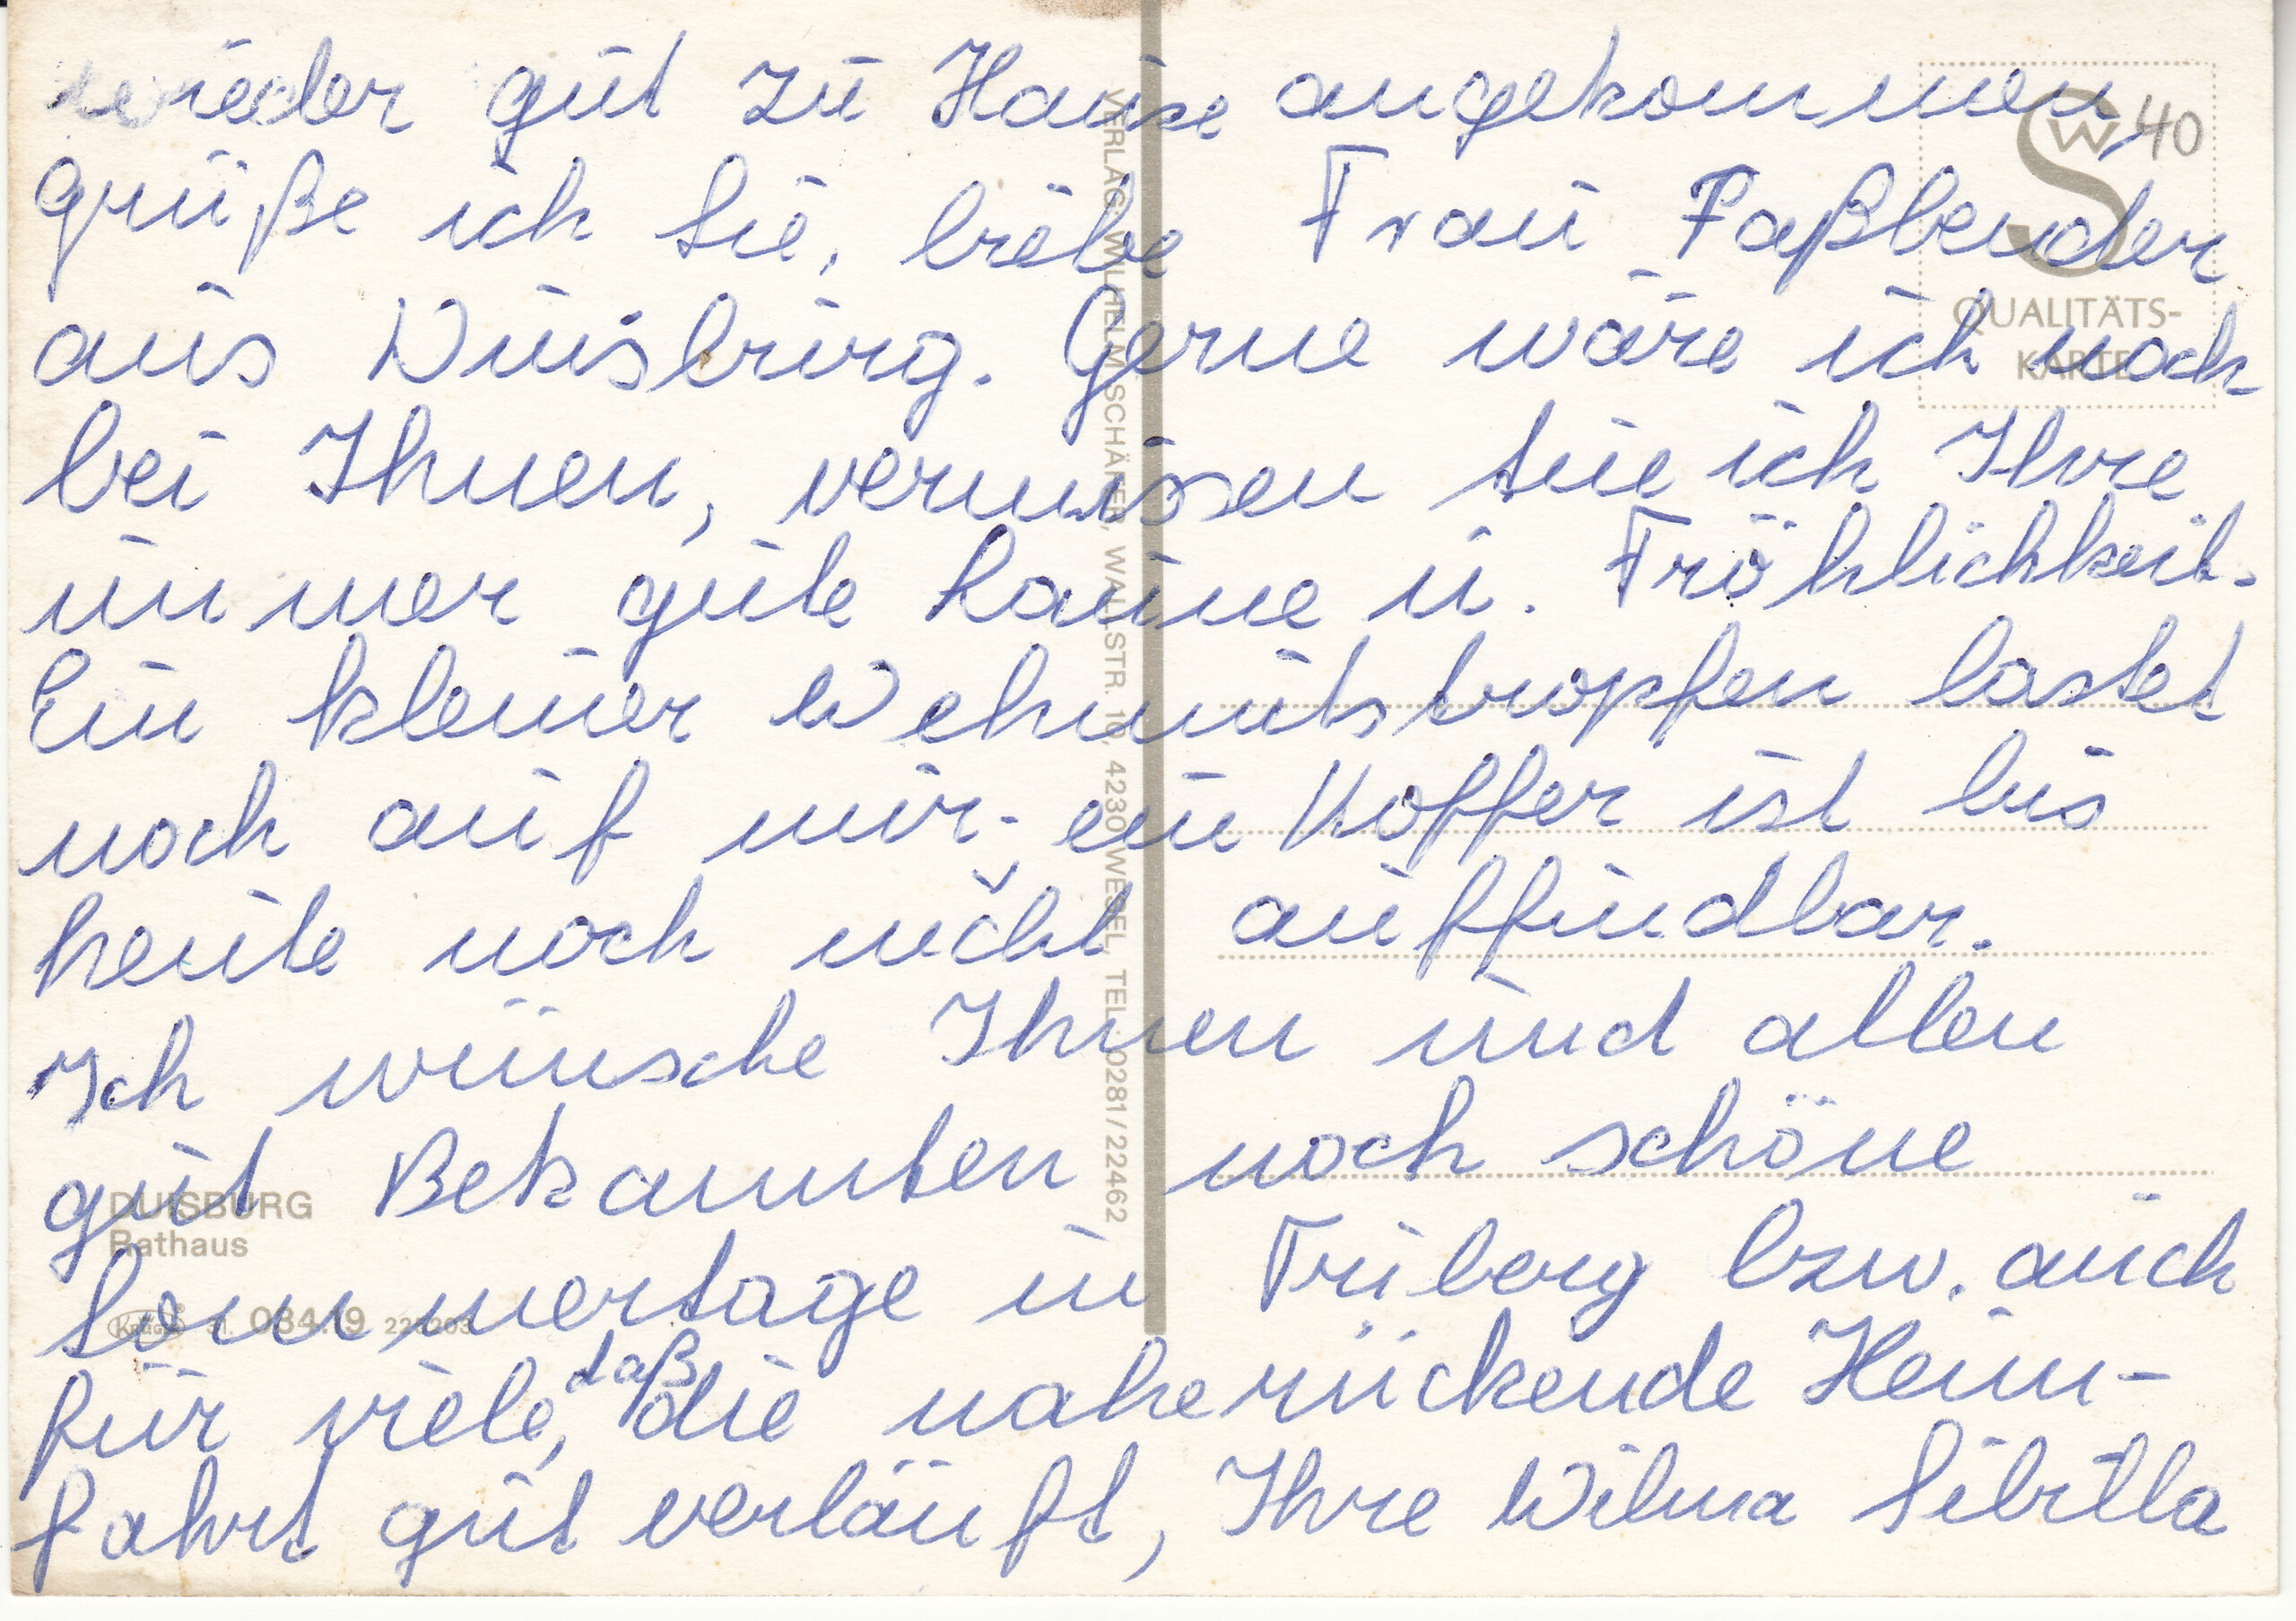 wieder gut zu Hause angekommen,
grüße ich Sie, liebe Frau Faßbender
aus Duisburg. Gerne wäre ich noch
bei Ihnen, vermissen tue ich Ihre
immer gute Laune u. Fröhlichkeit.
Ein kleiner Wehmutstropfen lastet
noch auf mir; ein Koffer ist bis
heute noch nicht auffindbar.
Ich wünsche Ihnen und allen
gut Bekannten noch schöne
Sommertage in Triberg bzw. auch
für viele, daß die naherückende Heim-
fahrt gut verläuft, Ihre Wilma Sibilla
40
SW
QUALITÄTS-
KARTE
VERLAG: WILHELM SCHÄFER, WALLSTR. 10, 4230 WESEL, TEL. 0281/22462
DUISBURG
Rathaus
Krüger 034.19